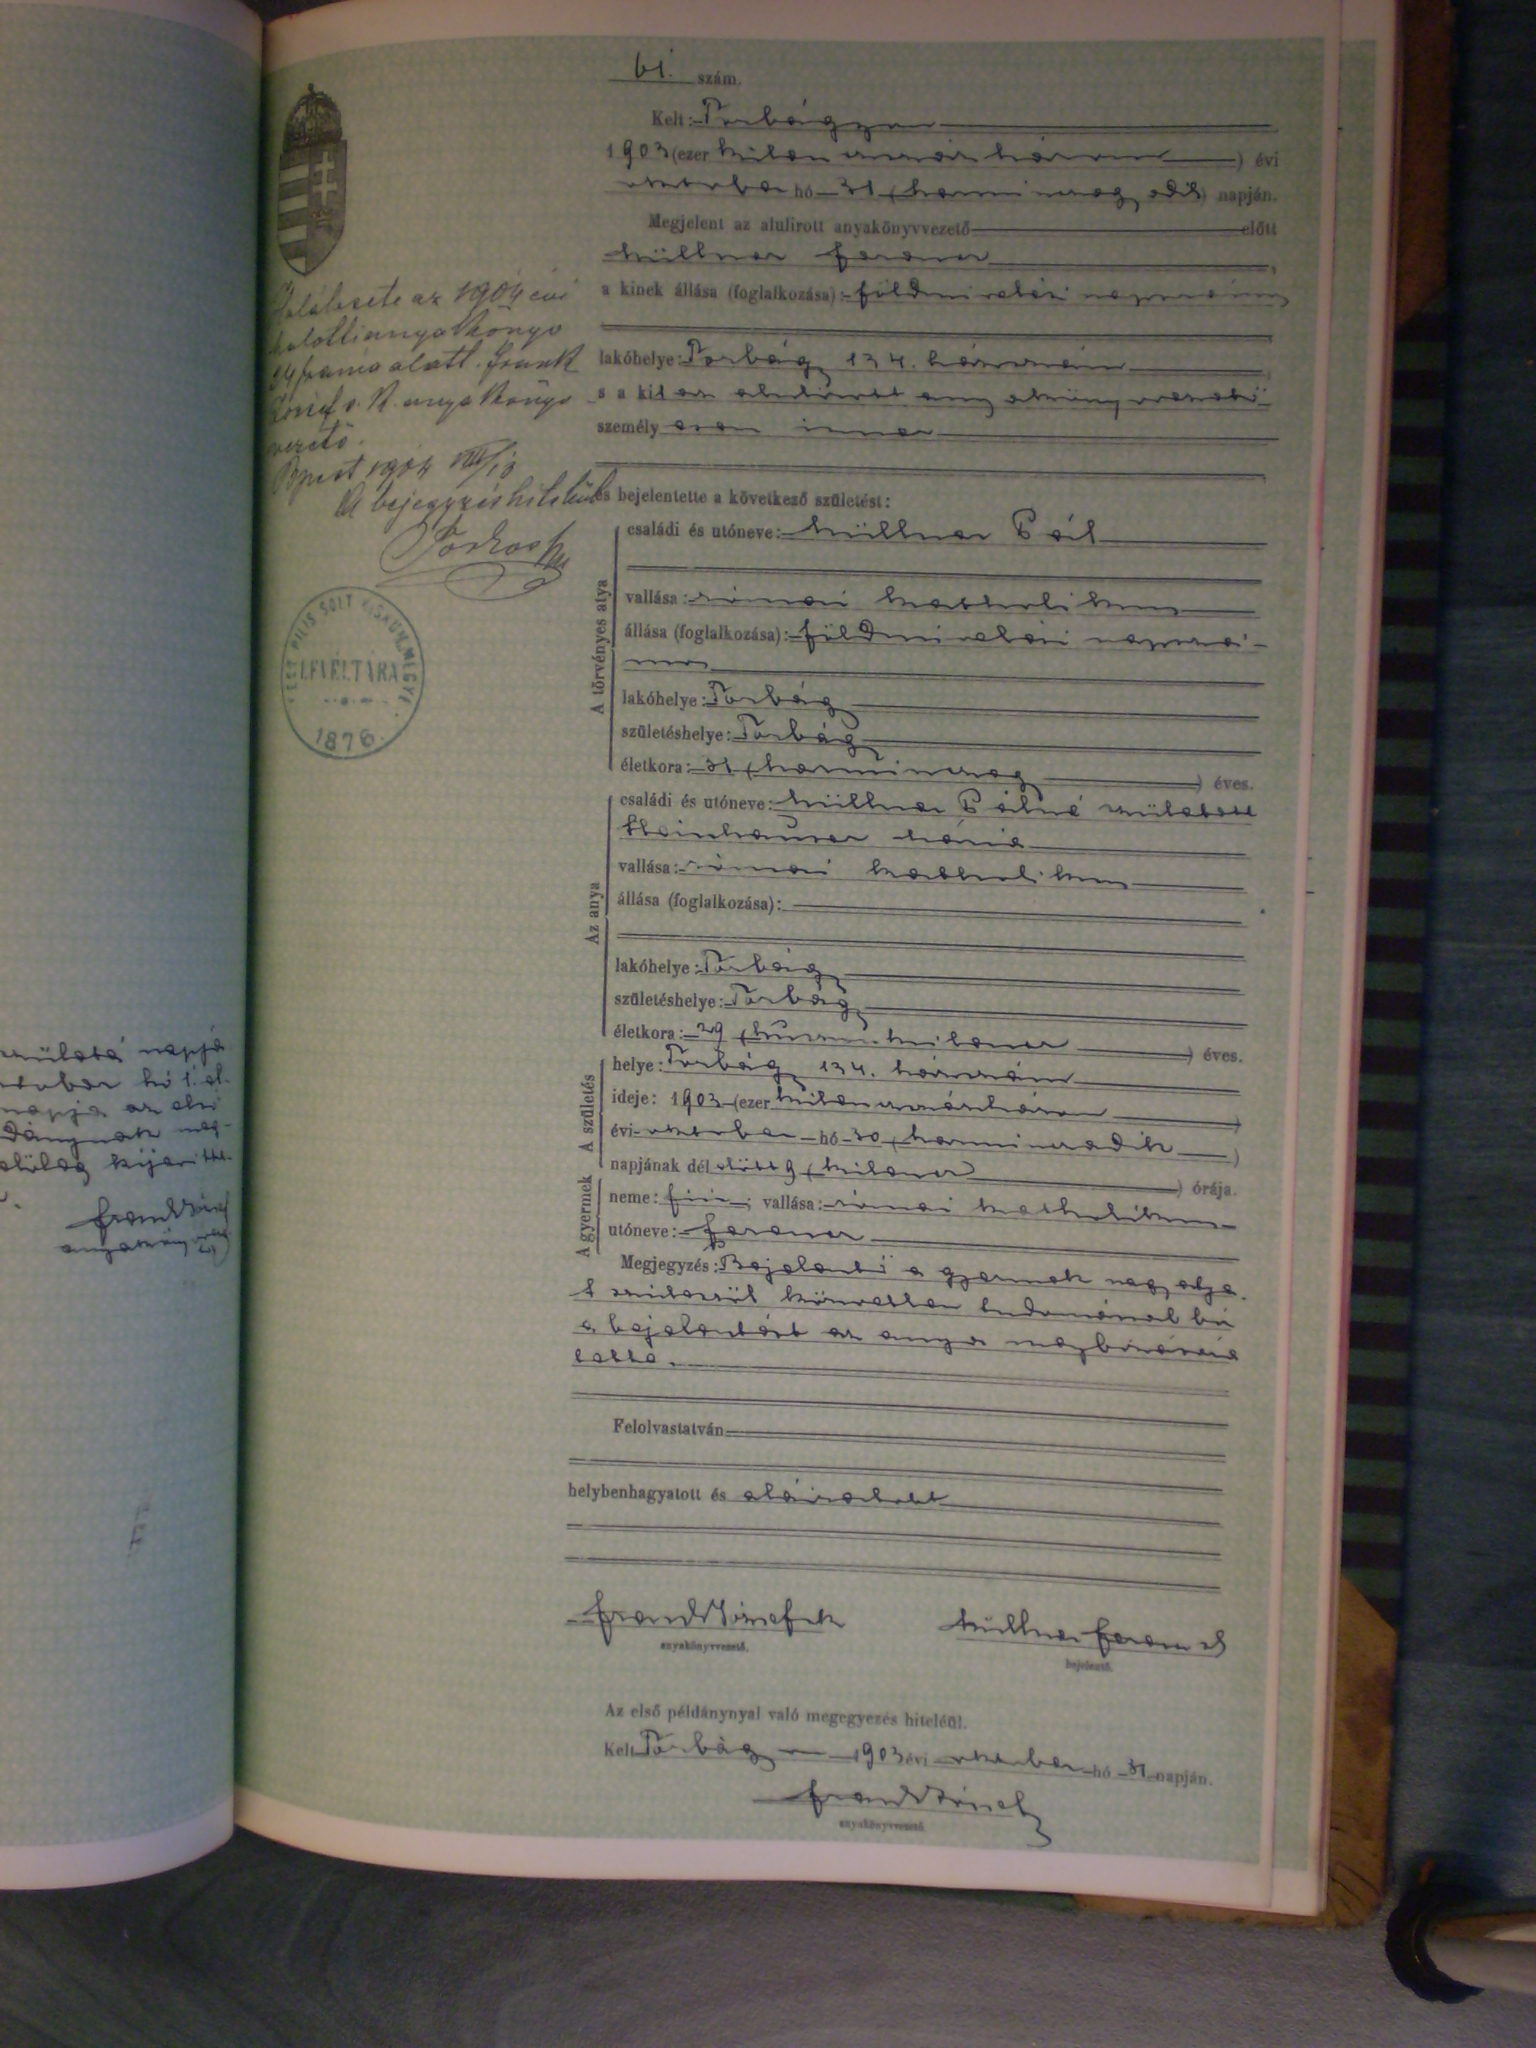 61. szám.
Kelt: Torbágyon
1903 (ezer kilencszázhárom) évi
október hó 31 (harmincegyedik) napján.
Megjelent az alulirott anyakönyvvezető előtt
Müllner Ferenc
a kinek állása (foglalkozása): földmivelési napszámos
lakóhelye: Torbágy 134. házszám
s a kit az alulirott anyakönyvvezető
személyesen ismer
és bejelentette a következő születést:
A törvényes atya
családi és utóneve: Müllner Pál
vallása: római katholikus
állása (foglalkozása): földmivelési napszá-
mos
lakóhelye: Torbágy
születéshelye: Torbágy
életkora: 31 (harmincegy) éves.
Az anya
családi és utóneve: Müllner Pálné született
Steinhauser Mária
vallása: római katholikus
állása (foglalkozása):
lakóhelye: Torbágy
születéshelye: Torbágy
életkora: 29 (huszonkilencz) éves.
A születés
helye: Torbágy 134. házszám
ideje: 1903 (ezer kilencszázhárom)
évi október hó 30 (harmincadik)
napjának dél előtt 9 (kilencz) órája.
A gyermek
neme: fiú; vallása: római katholikus
utóneve: Ferenc
Megjegyzés: Bejelentő a gyermek nagyatyja.
A szülésről közvetlen tudomással bír
a bejelentést az anya megbízására
tette.
Felolvastatván
helybenhagyatott és aláiratott
Frank József sk
anyakönyvvezető.
Müllner Ferenc sk
bejelentő.
Az első példánynyal való megegyezés hiteléül.
Kelt Torbágyon 1903 évi október hó 31 napján.
Frank József
anyakönyvvezető
Halálesete az 1904 évi
halotti anyakönyv
alatt. Frank
József s. k. anyakönyv
vezető.
Bpest 1904 VIII/18
A bejegyzés hiteléül
PEST PILIS SOLT KISKUN MEGYE
LEVÉLTÁRA
1876.
születés napja
október hó 1. el-
napja az első
dánynak meg-
előleg kijavitta-
Frank József
anyakönyvvezető